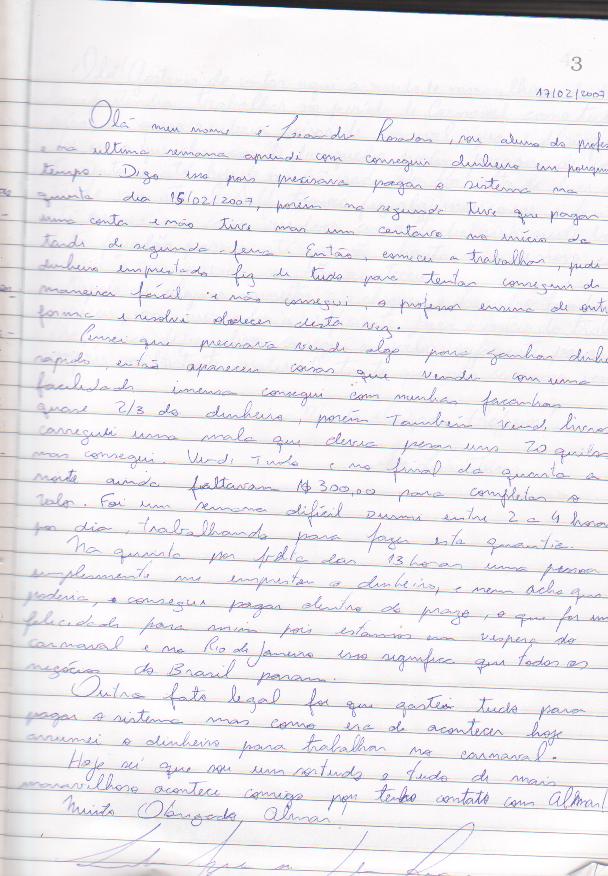 3
17/02/2007
Olá meu nome é Leandro Rosadas, sou aluno do profes
e na ultima semana aprendi com conseguir dinheiro em pouquis
tempo. Digo isso pois precisava pagar o sistema na
quinta dia 15/02/2007, porém na segunda tive que pagar
uma conta e não tive mas um centavo no início da
tarde de segunda-feira. Então, comecei a trabalhar, pedi
dinheiro emprestado fiz de tudo para tentar conseguir da
maneira fácil e não consegui, o professor ensina de outra
forma e resolvi obedecer desta vez.
Pensei que precisava vende algo para ganhar dinhe
rápido, então aparecem coisas que vende com uma
facilidade imensa consegui com minhas façanhas
quase 2/3 do dinheiro, porém também vendi livros
carreguei uma mala que devia pesar uns 20 quilos
mas consegui. Vendi tudo e no final da quarta a
noite ainda faltavam R$300,00 para completar o
valor. Foi um semana difícil Durmi entre 2 a 4 horas
por dia, trabalhando para fazer esta quantia.
Na quinta por volta das 13 horas uma pessoa
simplesmente me emprestou o dinheiro, e nem acho que
poderia, e consegui pagar dentro do prazo, o que foi um
felicidade para mim pois estamos em vespera do
carnaval e no Rio de Janeiro isso significa que todos os
negócios do Brasil param.
Outro fato legal foi que gastei tudo para
pagar o sistema mas como era de acontecer hoje
arrumei o dinheiro para trabalhar no carnaval.
Hoje sei que sou um sortudo e tudo de mais
maravilhoso acontece comigo por tenho contato com Almar!
Muito Obrigado, Almar!